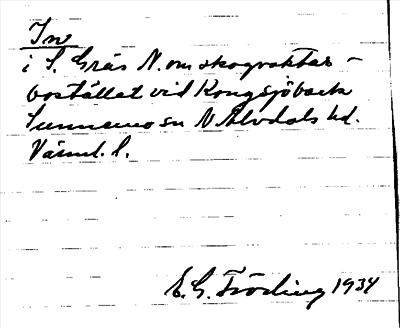 In
i S. Grås N. om skogvaktar-
bostället vid Kongsjöback
Sunnemo sn N. Älvdals hd.
Värml. l.
E. G. Fröding 1934